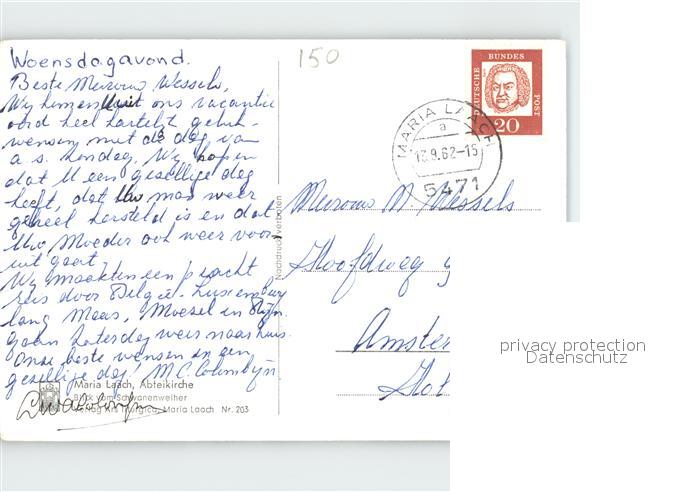 Woensdagavond.
150
Beste Mevrouw Wessels,
Wij komen Uit ons vacantie
oord heel hartelijk geluk-
wensen met de dag van
a.s. Zondag, Wij hopen
dat U een gezellige dag
heeft, dat Uw man weer
geheel hersteld is en dat
Uw Moeder ook weer vooruit gaat.
Wij maakten een pracht
reis door België - Luxemburg
lang Maas, Moesel en Rijn.
gaan Zaterdag weer naar huis.
Onze beste wensen en een
gezellige dag! M.C.
Maria Laach, Abteikirche
Blick vom Schwanenweiher
Verlag Ars liturgica, Maria Laach Nr. 203
Nachdruck verboten
DEUTSCHE BUNDESPOST
20
MARIA LAACH
a
13.9.62-15
5471
Mevrouw M Wessels
Hoofdweg
Amster
privacy protection
Datenschutz